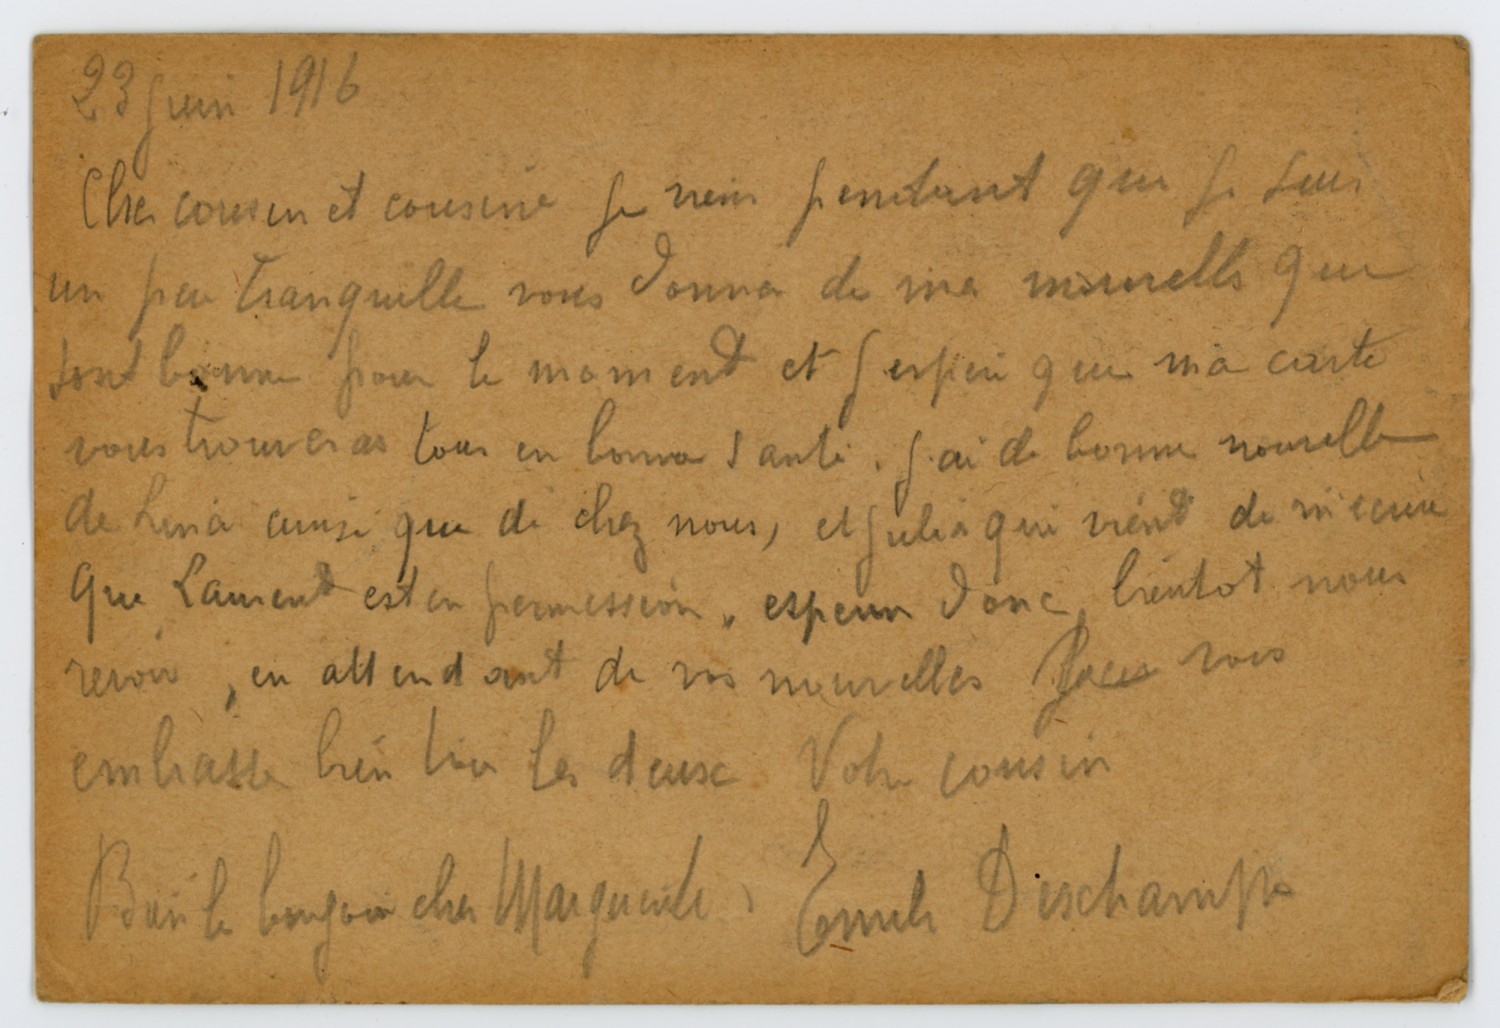 23 juin 1916
Cher cousin et cousine je viens pendant que je suis
un peu tranquille vous donner de mes nouvells que
sont bonne pour le moment et j'espère que ma carte
vous trouveras tous en bonne santé. j'ai de bonne nouvelle
de Lena ainsi que de chez nous, et Julia qui vient de m'ecrire
que Laurent est en permission, esperon donc bientot nous
revoir, en attendant de vos nouvelles vous
embrasse bien tous les deux Votre cousin
Bien le bonjour chez Marguerite, Emile Deschamps